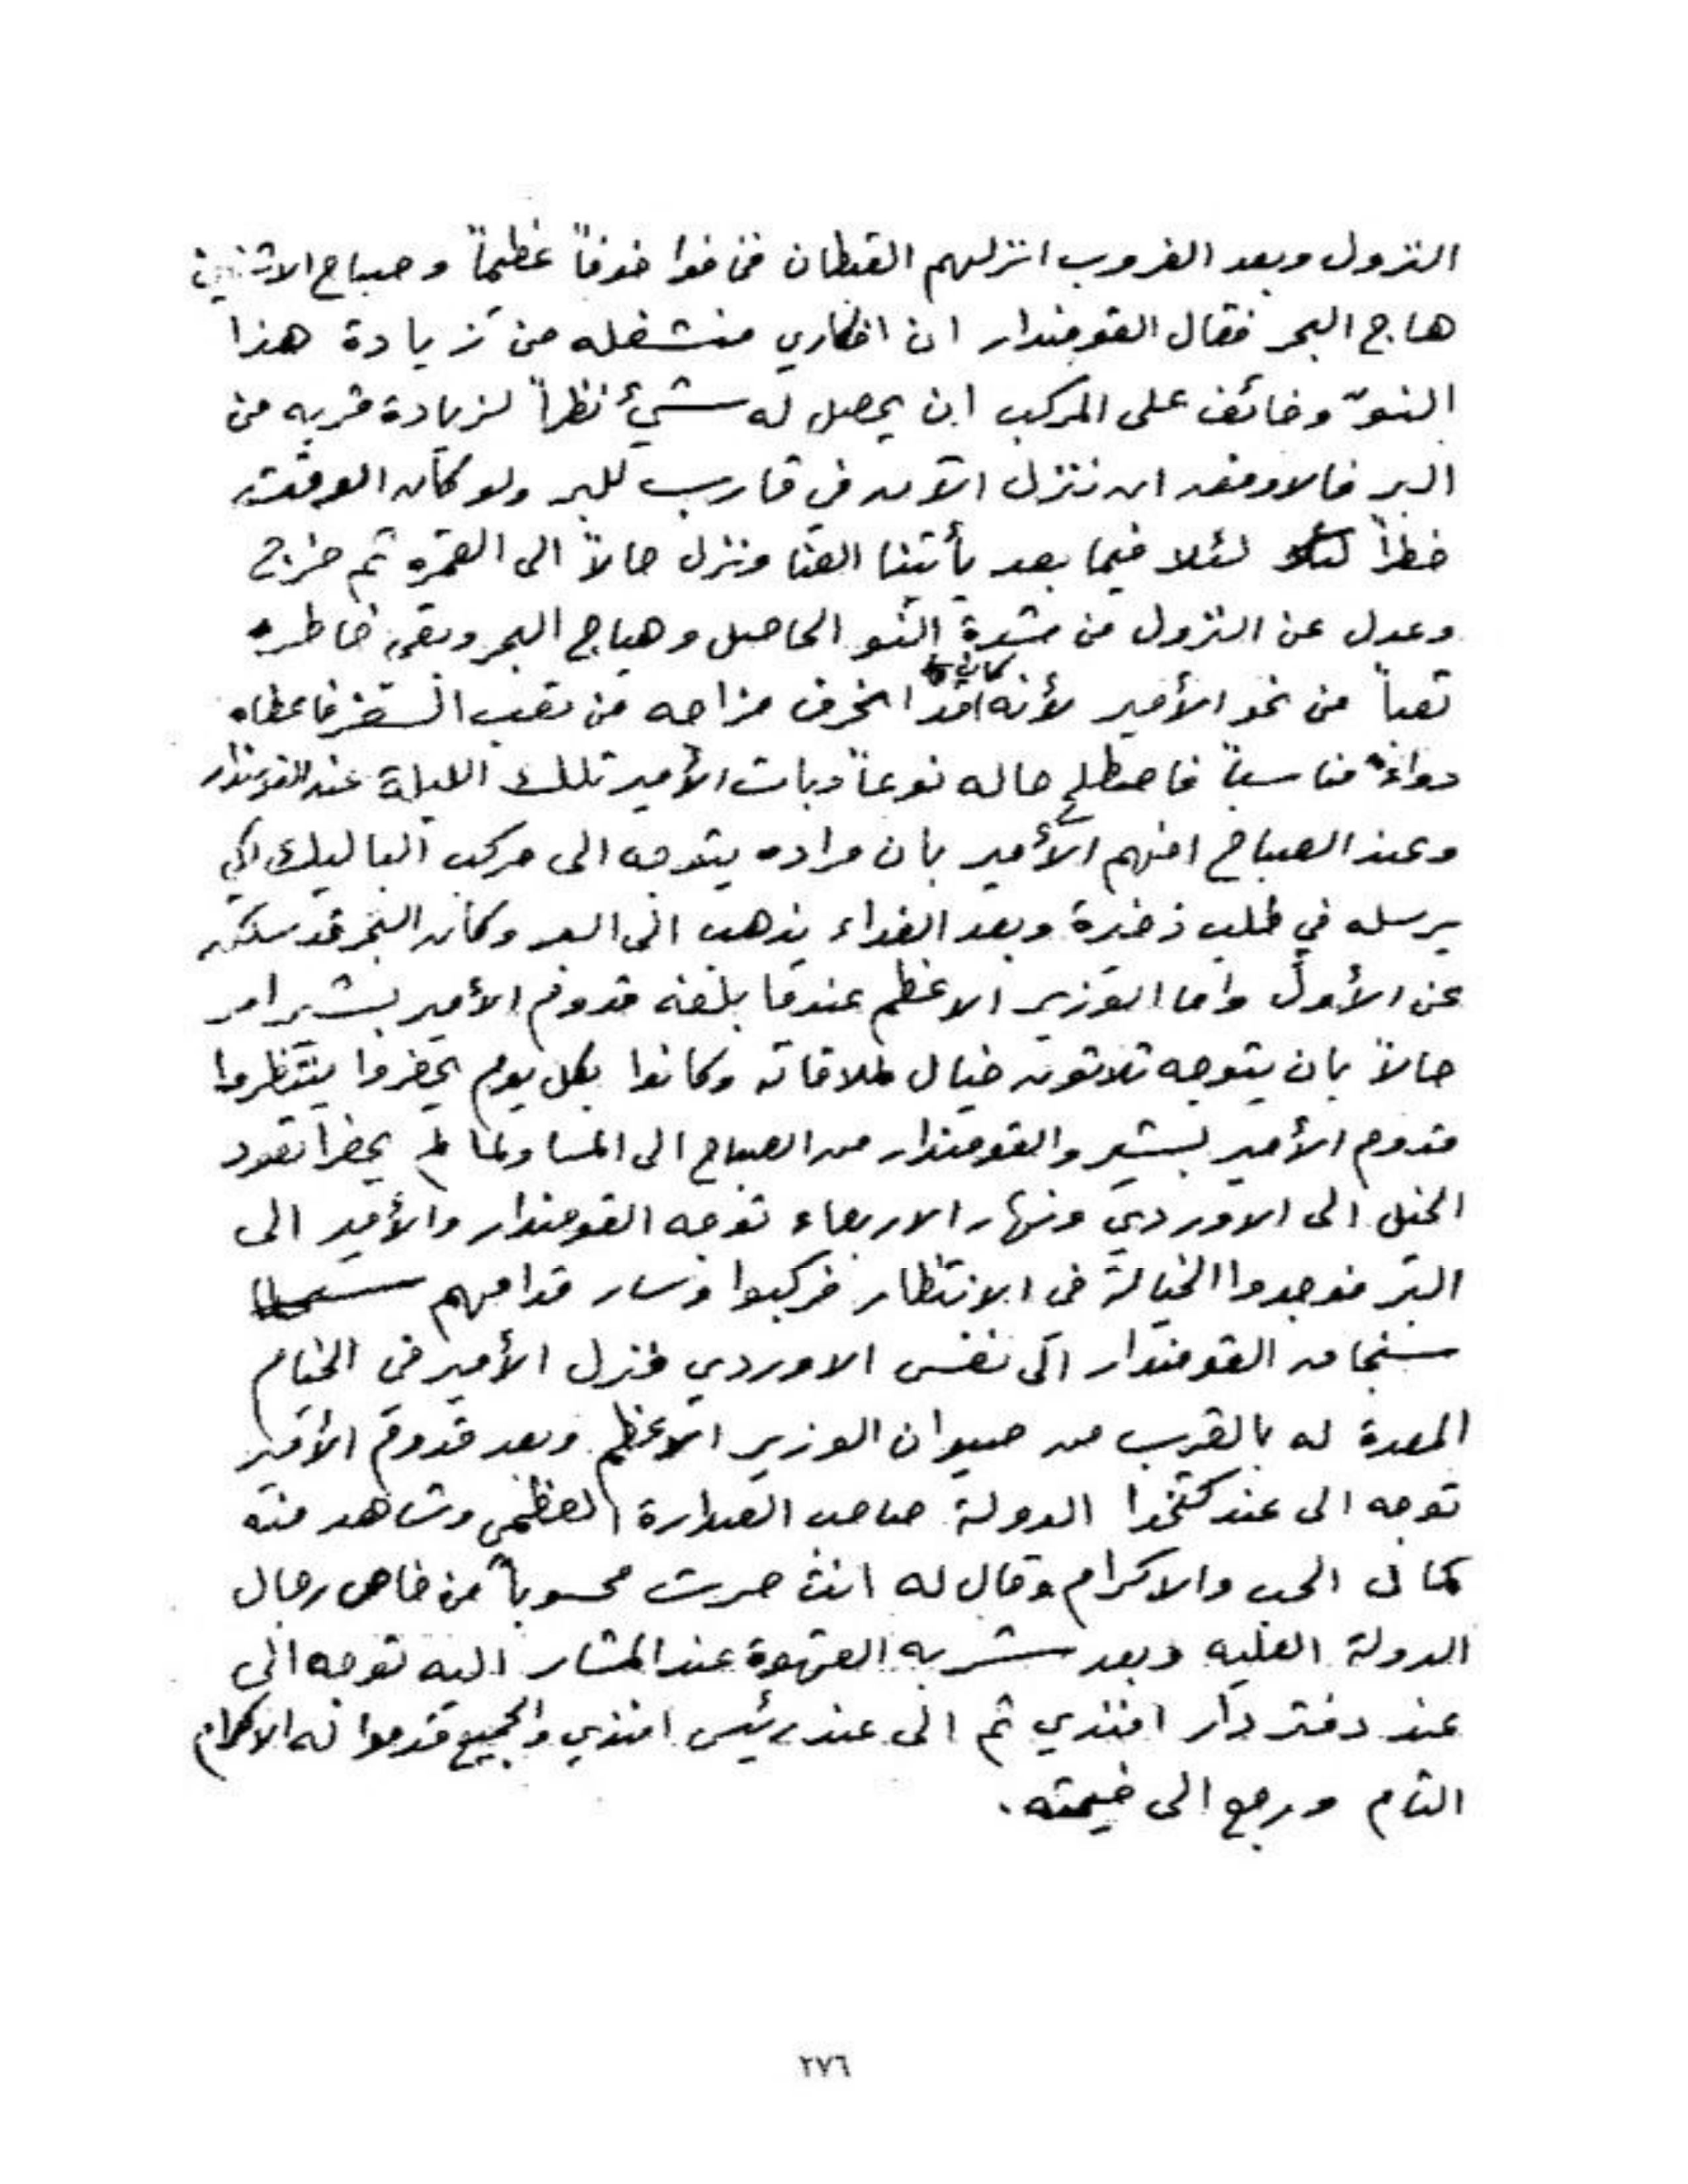 النزول وبعد الغروب انزلهم القبطان فخافوا خوفاً عظيماً وصباح الاثنين
هاج البحر فقال القومندار ان افكاري منشغله من زيادة هذا
النوّ وخائف على المركب ان يحصل له شيءٌ نظراً لزيادة قربه من
البر فالاوفق ان ننزل الآن في قارب للبر ولو كان الوقت
خطراً لئلا فيما بعد يأتينا العنا ونزل حالاً الى القمره ثم خرج
وعدل عن النزول من شدة النو الحاصل وهياج البحر وبقي خاطره
تعباً من نحو الأمير لأنه كان قد انحرف مزاجه من تعب السفر فاعطاه
دواءً مناسباً فاصطلح حاله نوعاً وبات الأمير تلك الليلة عند القومندار
وعند الصباح افهم الأمير بان مراده يتوجه الى مركب الباليك لكي
يرسله في طلب ذخيرة وبعد الغداء يذهب الى البر وكان البحر قد سكن
عن الأول واما الوزير الاعظم عندما بلغه قدوم الأمير بشير امر
حالاً بان يتوجه ثلاثون خيال لملاقاته وكانوا بكل يوم يحضروا ينتظروا
قدوم الأمير بشير والقومندار من الصباح الى المسا ولما لم يحضرا تعود
الخيل الى الاوردي ونهار الاربعاء توجه القومندار والأمير الى
البر فوجدوا الخيالة في الانتظار فركبوا وسار قدامهم
سنجاق القومندار الى نفس الاوردي فنزل الأمير في الخيام
المعدة له بالقرب من صيوان الوزير الاعظم وبعد قدوم الأمير
توجه الى عند كتخدا الدولة صاحب الصدارة العظمى وشاهد منه
كمال الحب والاكرام وقال له انت صرت محسوباً من خاص رجال
الدولة العليه وبعد شربه القهوة عند المشار اليه توجه الى
عند دفتر دار افندي ثم الى عند رئيس افندي والجميع قدموا له الاكرام
التام ورجع الى خيمته.
٢٧٦